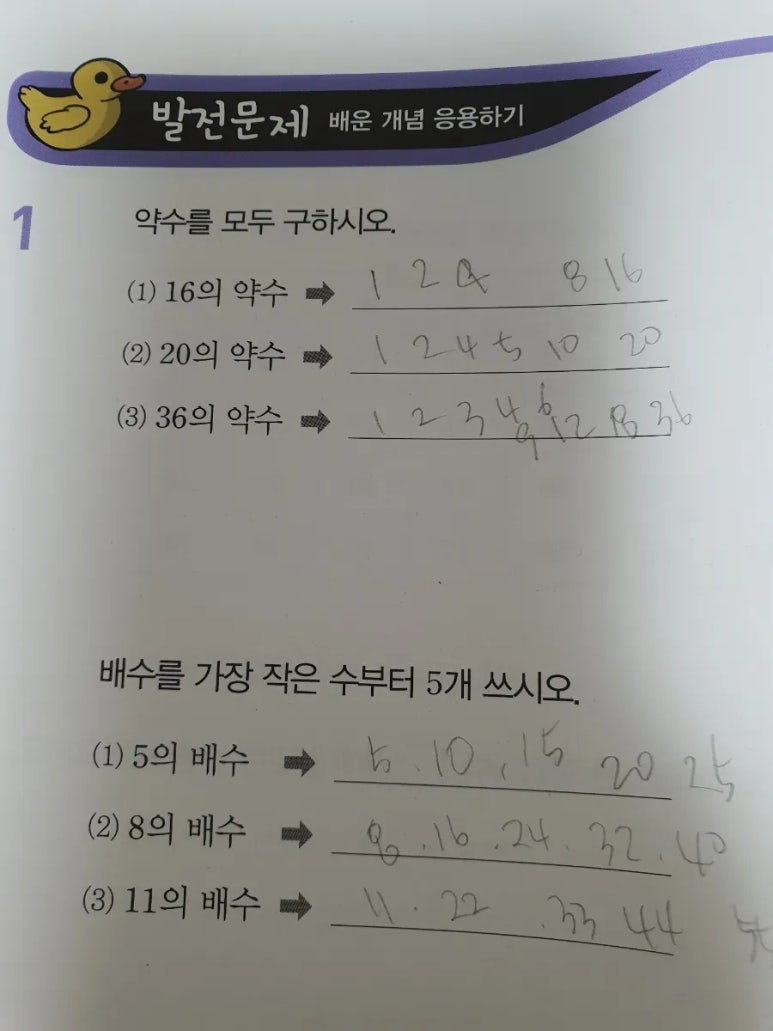 발전문제 배운 개념 응용하기
1 약수를 모두 구하시오.
(1) 16의 약수 ➡ 1 2 4 8 16
(2) 20의 약수 ➡ 1 2 4 5 10 20
(3) 36의 약수 ➡ 1 2 3 4 6 9 12 18 36
배수를 가장 작은 수부터 5개 쓰시오.
(1) 5의 배수 ➡ 5 . 10 , 15 20 25
(2) 8의 배수 ➡ 8 . 16 . 24 . 32 . 40
(3) 11의 배수 ➡ 11 . 22 . 33 44